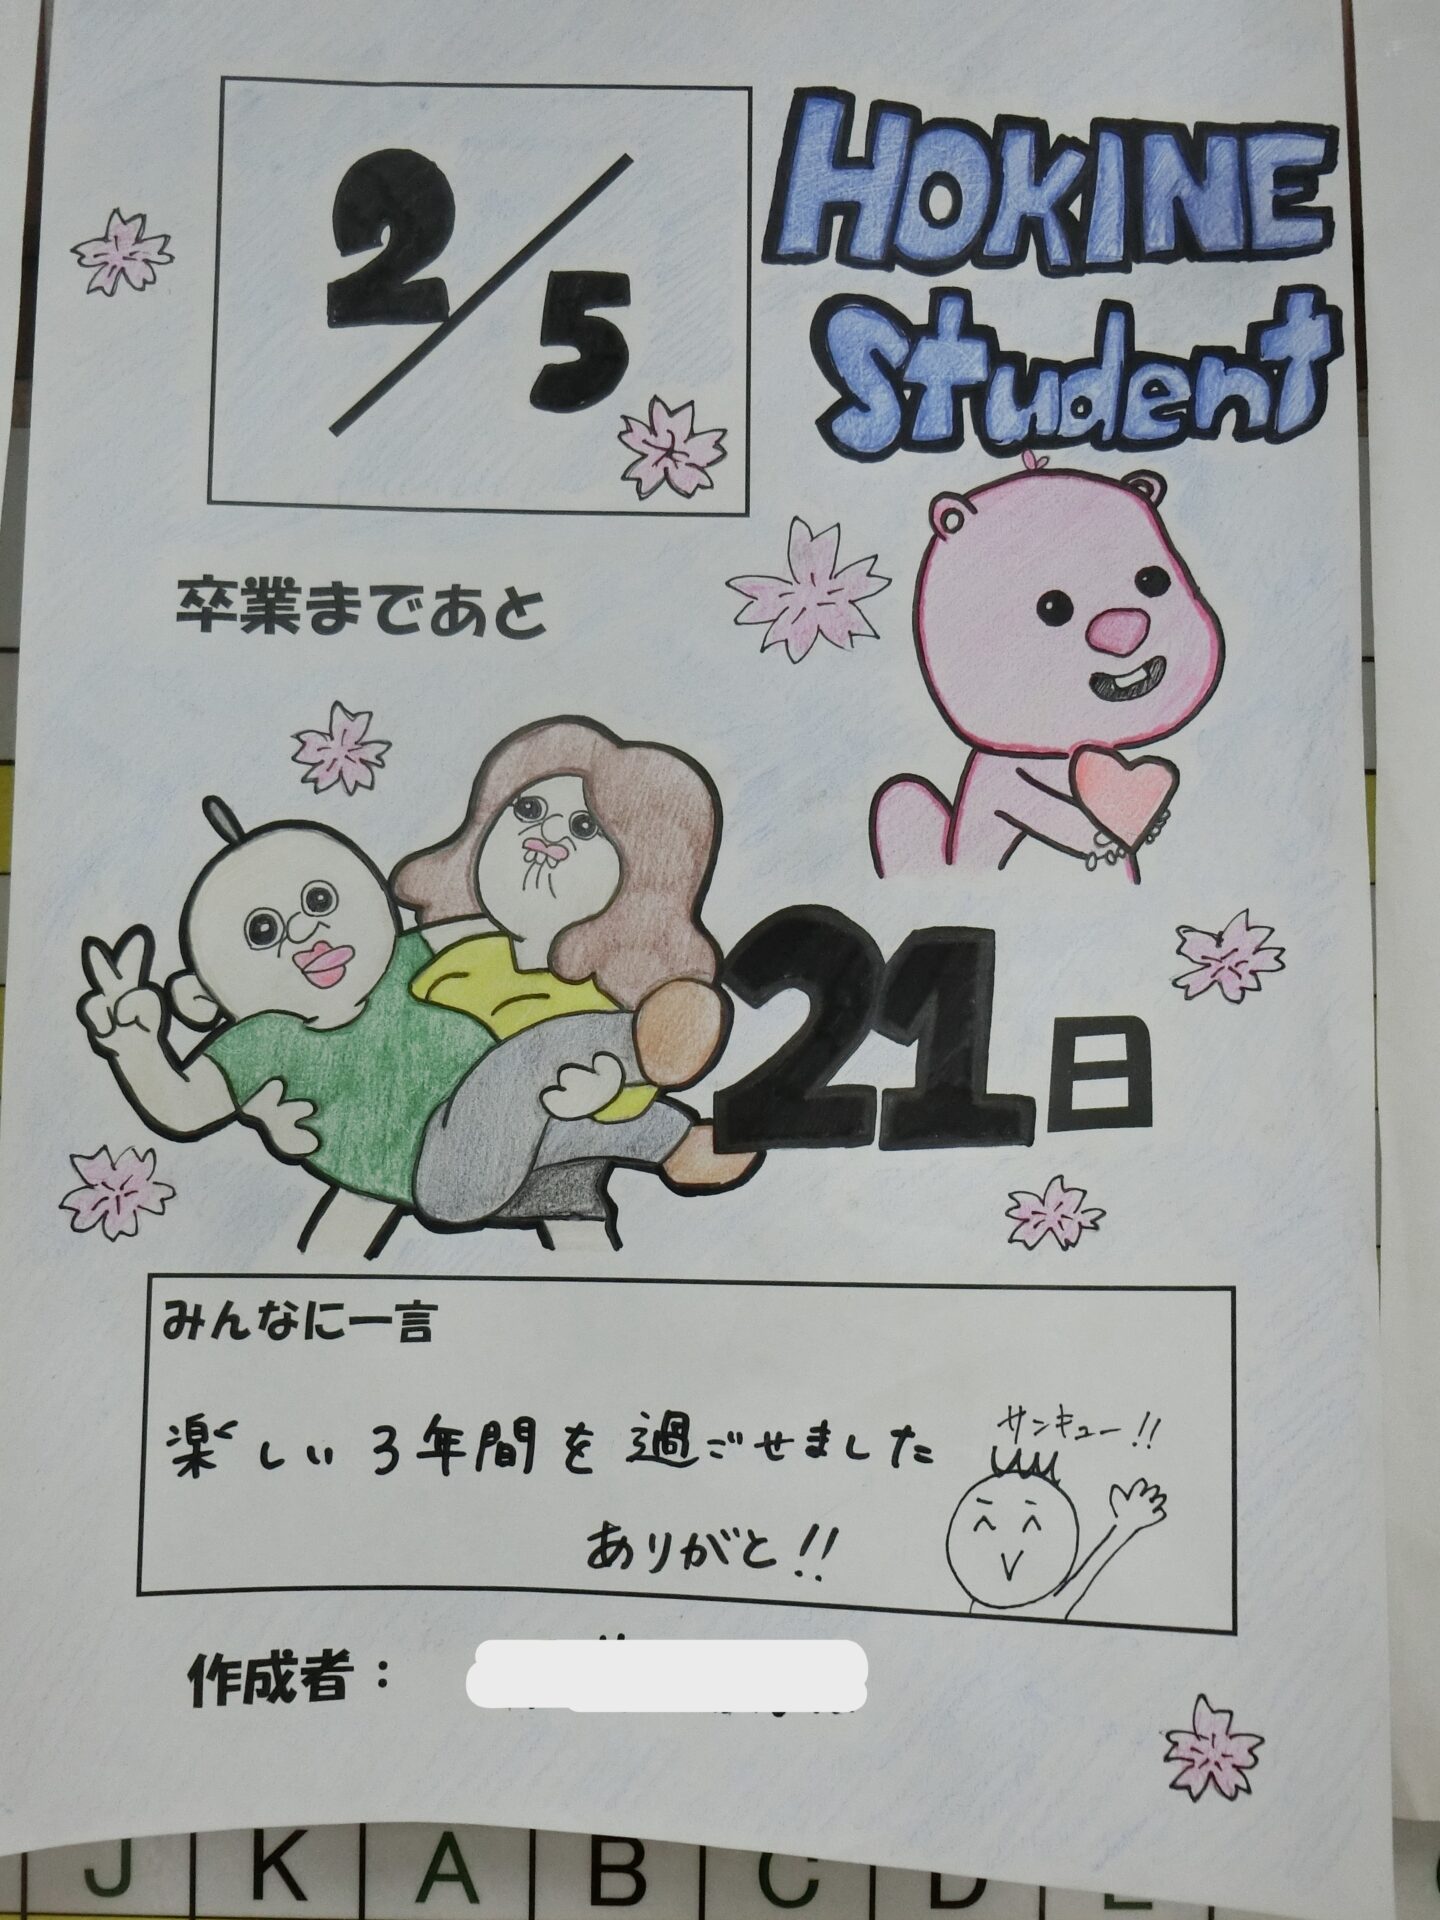 2/5
HOKINE
Student
卒業まであと
21日
みんなに一言
楽しい3年間を過ごせました
サンキュー!!
ありがと!!
作成者：
J K A B C D E